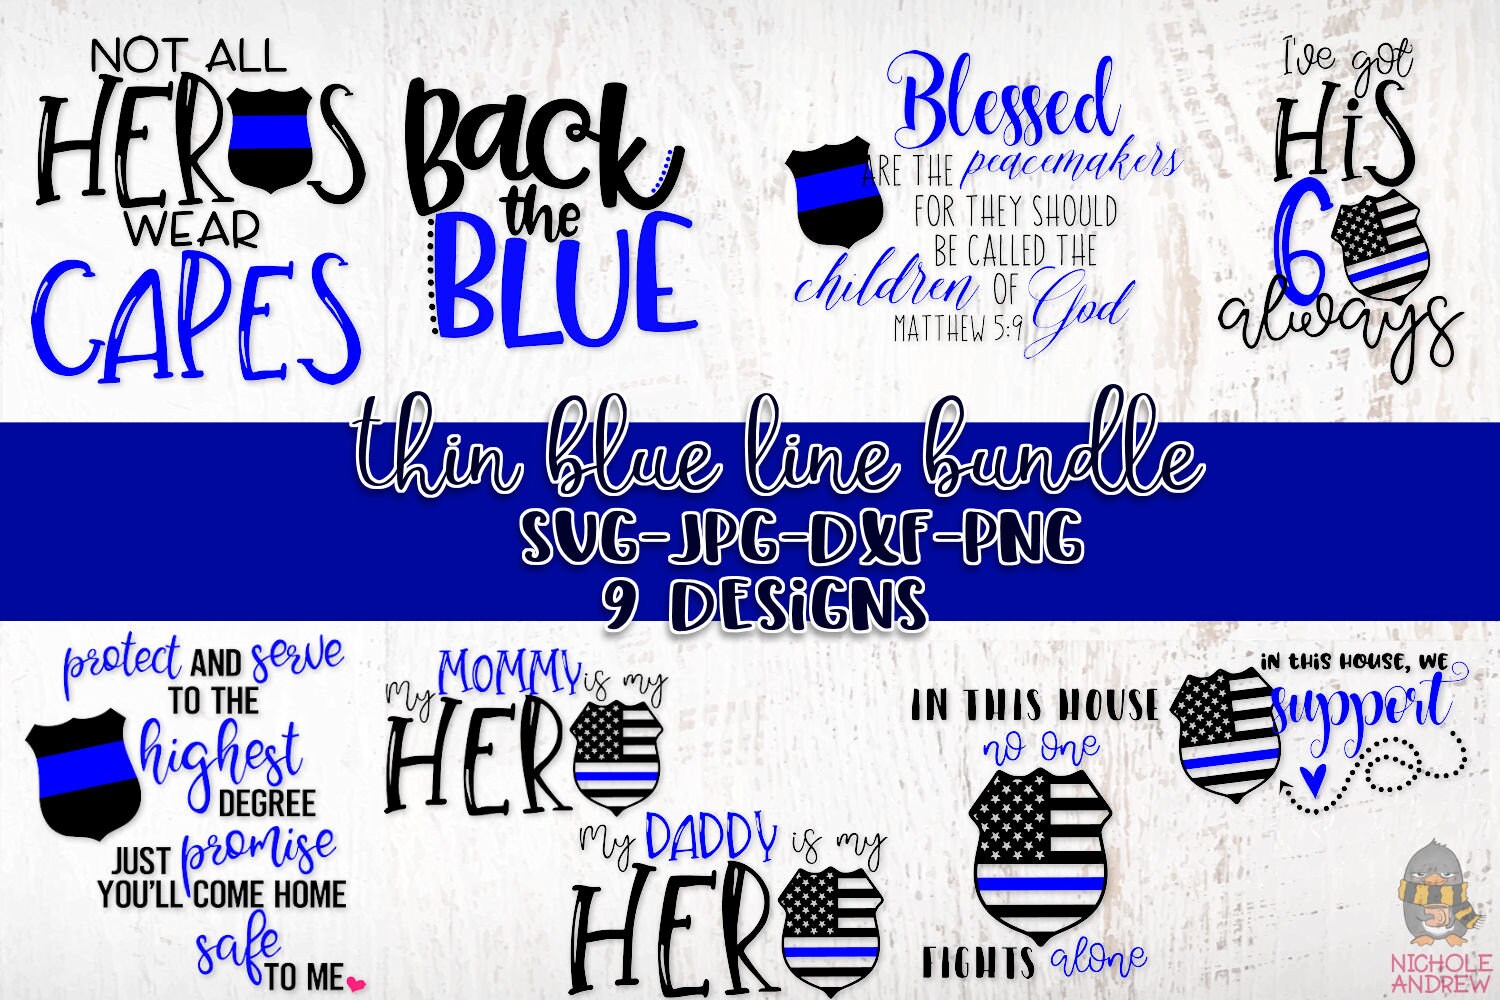 NOT ALL
HEROS
WEAR
CAPES
Back
the
BLUE
Blessed
ARE THE peacemakers
FOR THEY SHOULD
BE CALLED THE
children OF God
MATTHEW 5:9
I've got
HiS
6
always
thin blue line bundle
SVG-JPG-DXF-PNG
9 DESiGNS
protect AND serve
TO THE
highest
DEGREE
JUST promise
YOU'LL COME HOME
safe
TO ME
My MOMMY is my
HER
My DADDY is my
HER
IN THIS HOUSE
no one
FIGHTS alone
iN tHiS HOUSE, WE
support
NICHOLE
ANDREW